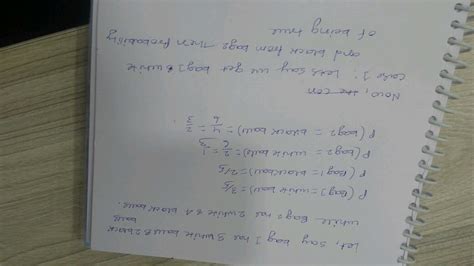 Let, say bag 1 has 3 white balls & 2 black balls
while Bag 2 has 2 white & 4 black balls.
P(bag 1 = white ball) = 3/5
P(bag 1 = black ball) = 2/5
P(bag 2 = white balls) = 2/6 = 1/3
P(bag 2 = black ball) = 4/6 = 2/3
Now, the con
case 1: Let's say we get bag 1 & white
and black from bag 2 Then probability
of being true